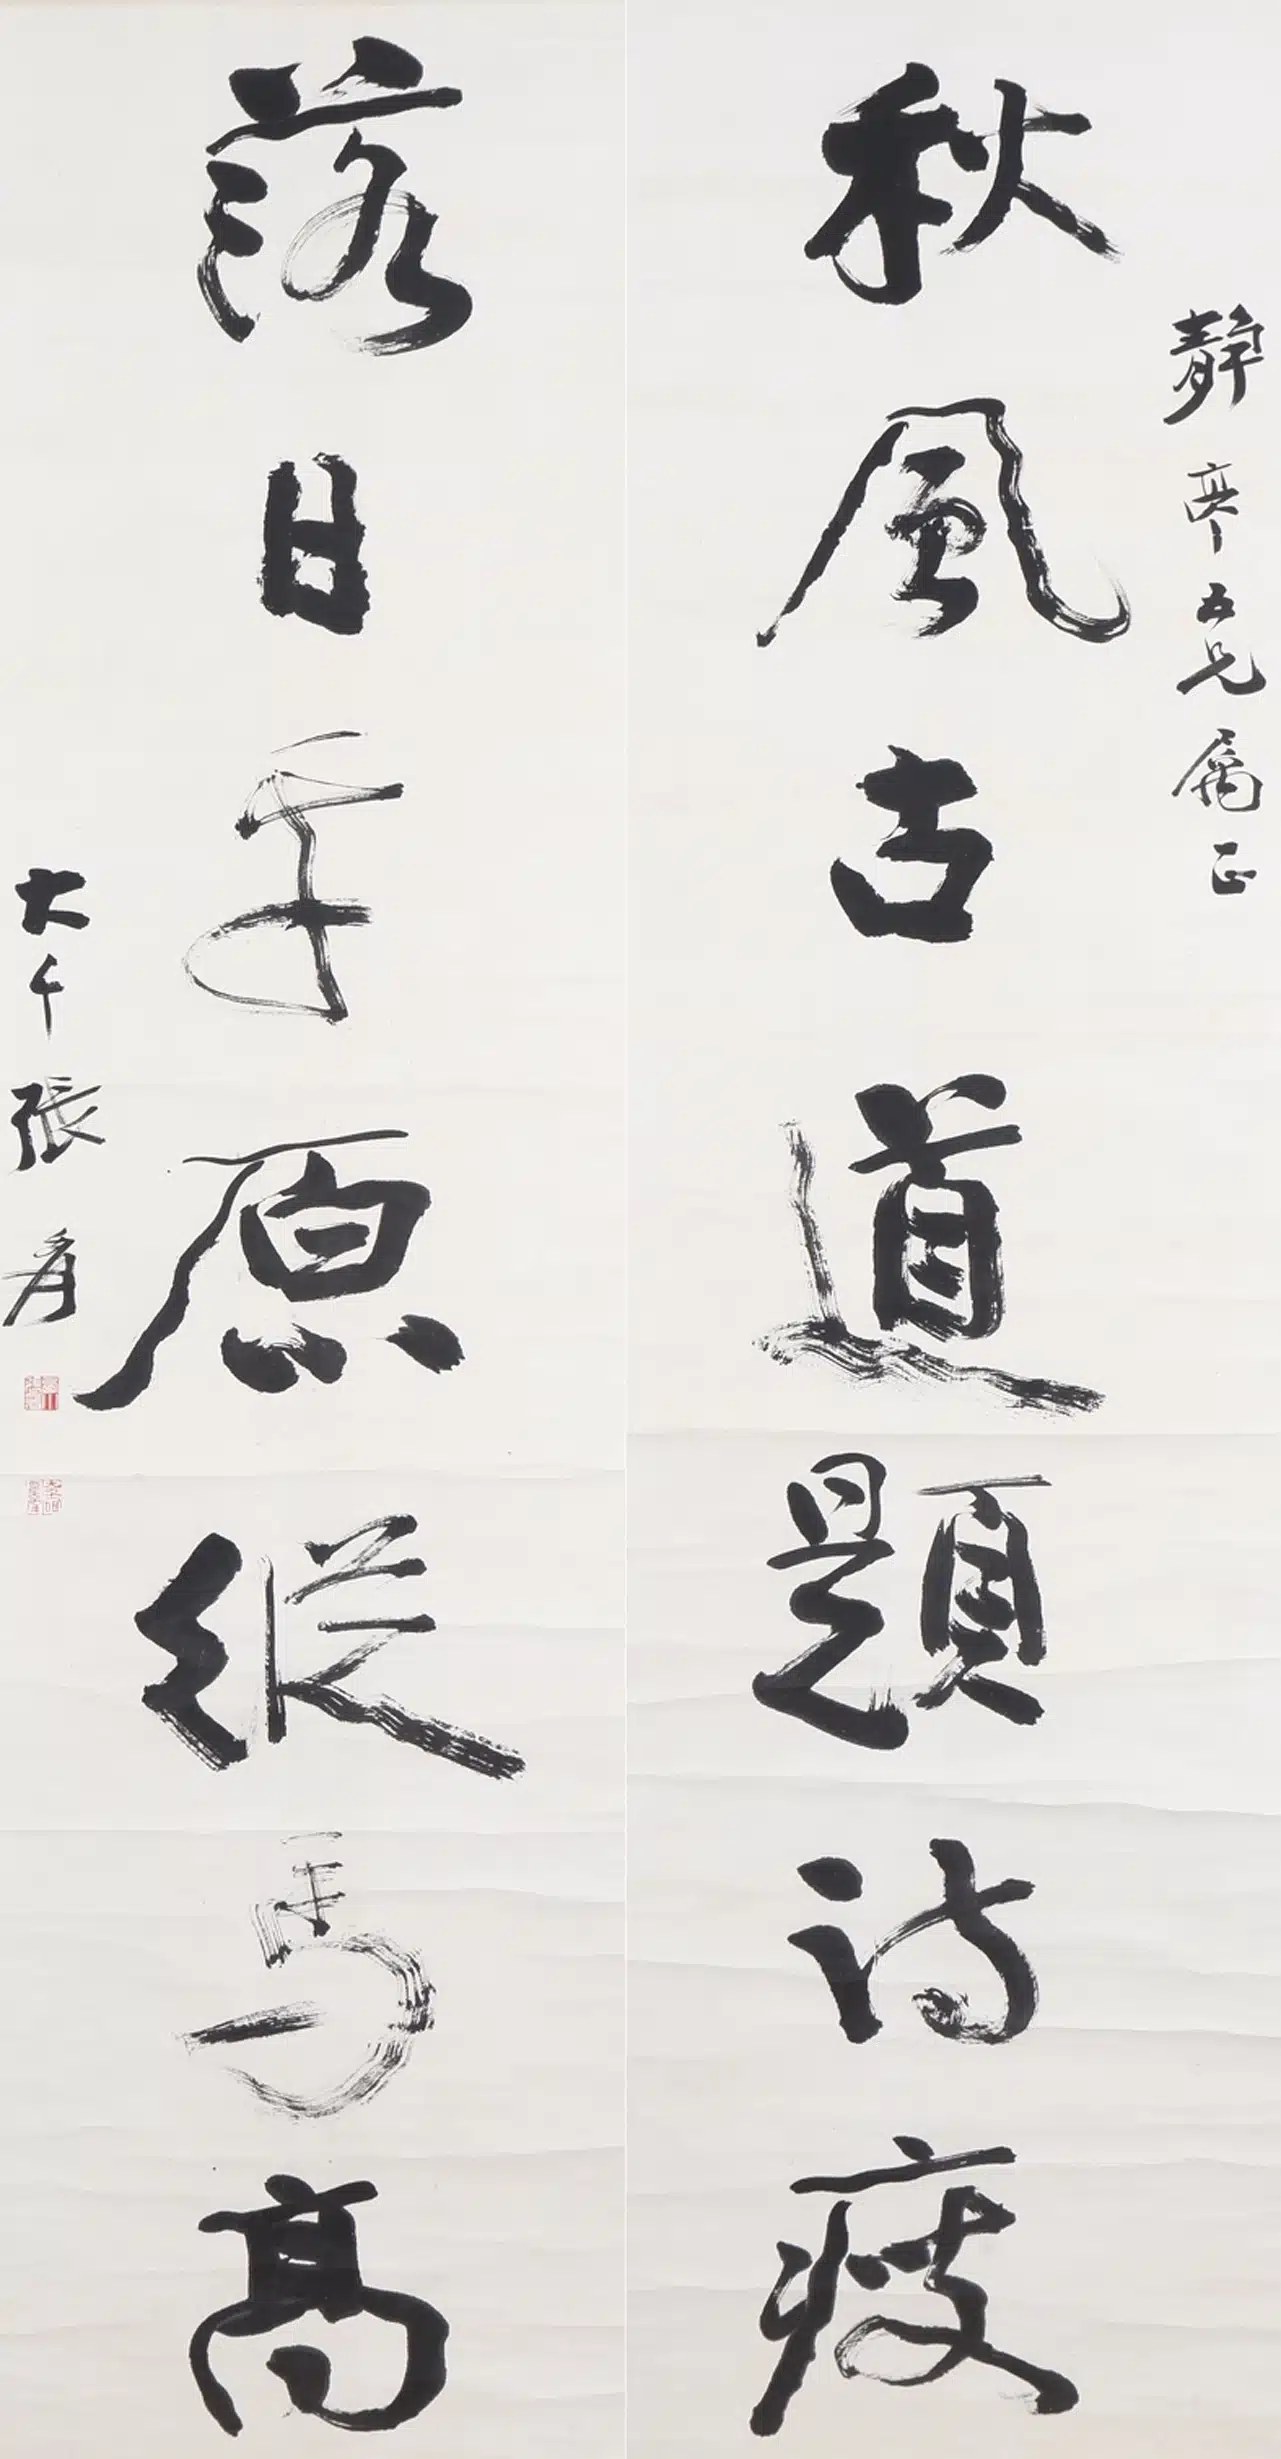 秋風古道題詩瘦
靜五兄属正
落日平原縱馬高
大千張爰